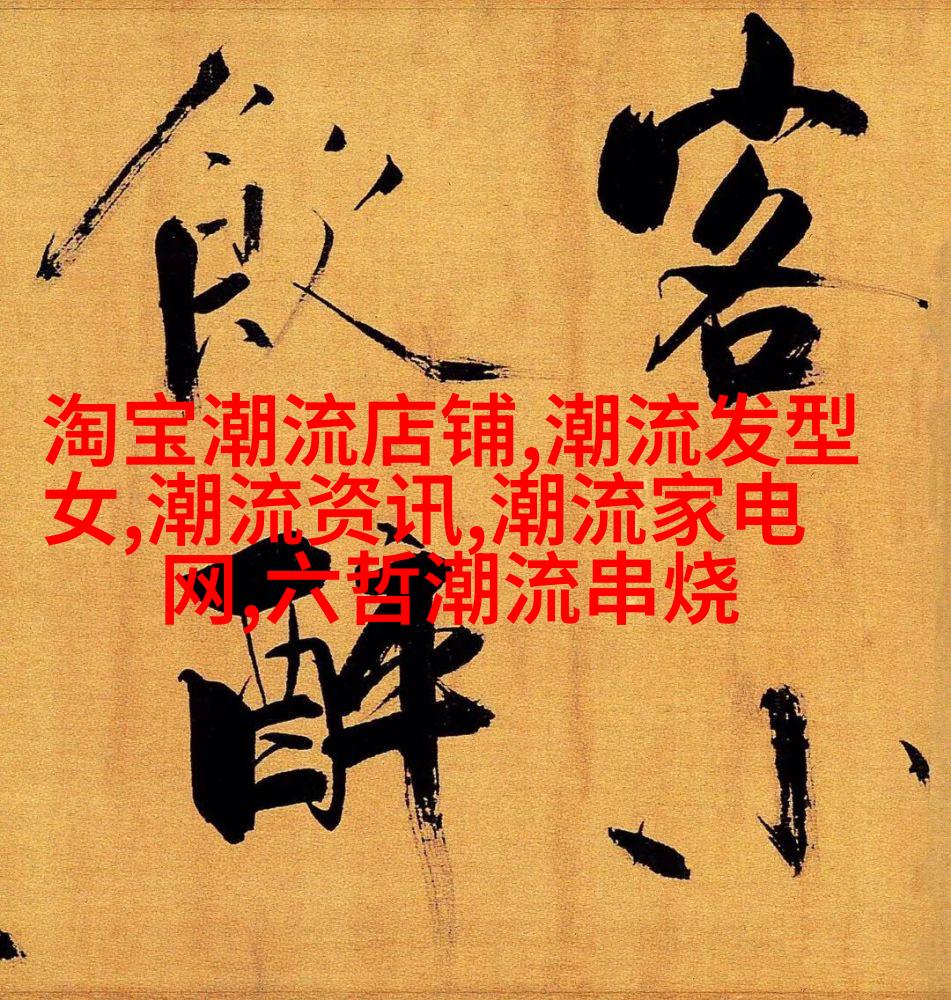 客小
飲醉
淘宝潮流店铺,潮流发型
女,潮流资讯,潮流家电
网,六哲潮流串烧